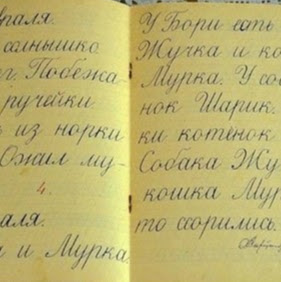 враля.
солнышко
г. Побежа-
ручейки
из норки
Ожил му-
4.
аля.
и Мурка
У Бори есть
Жучка и ко
Мурка. У соб
нок Шарик.
ки котёнок
Собака Жу
кошка Мур
то ссорились.